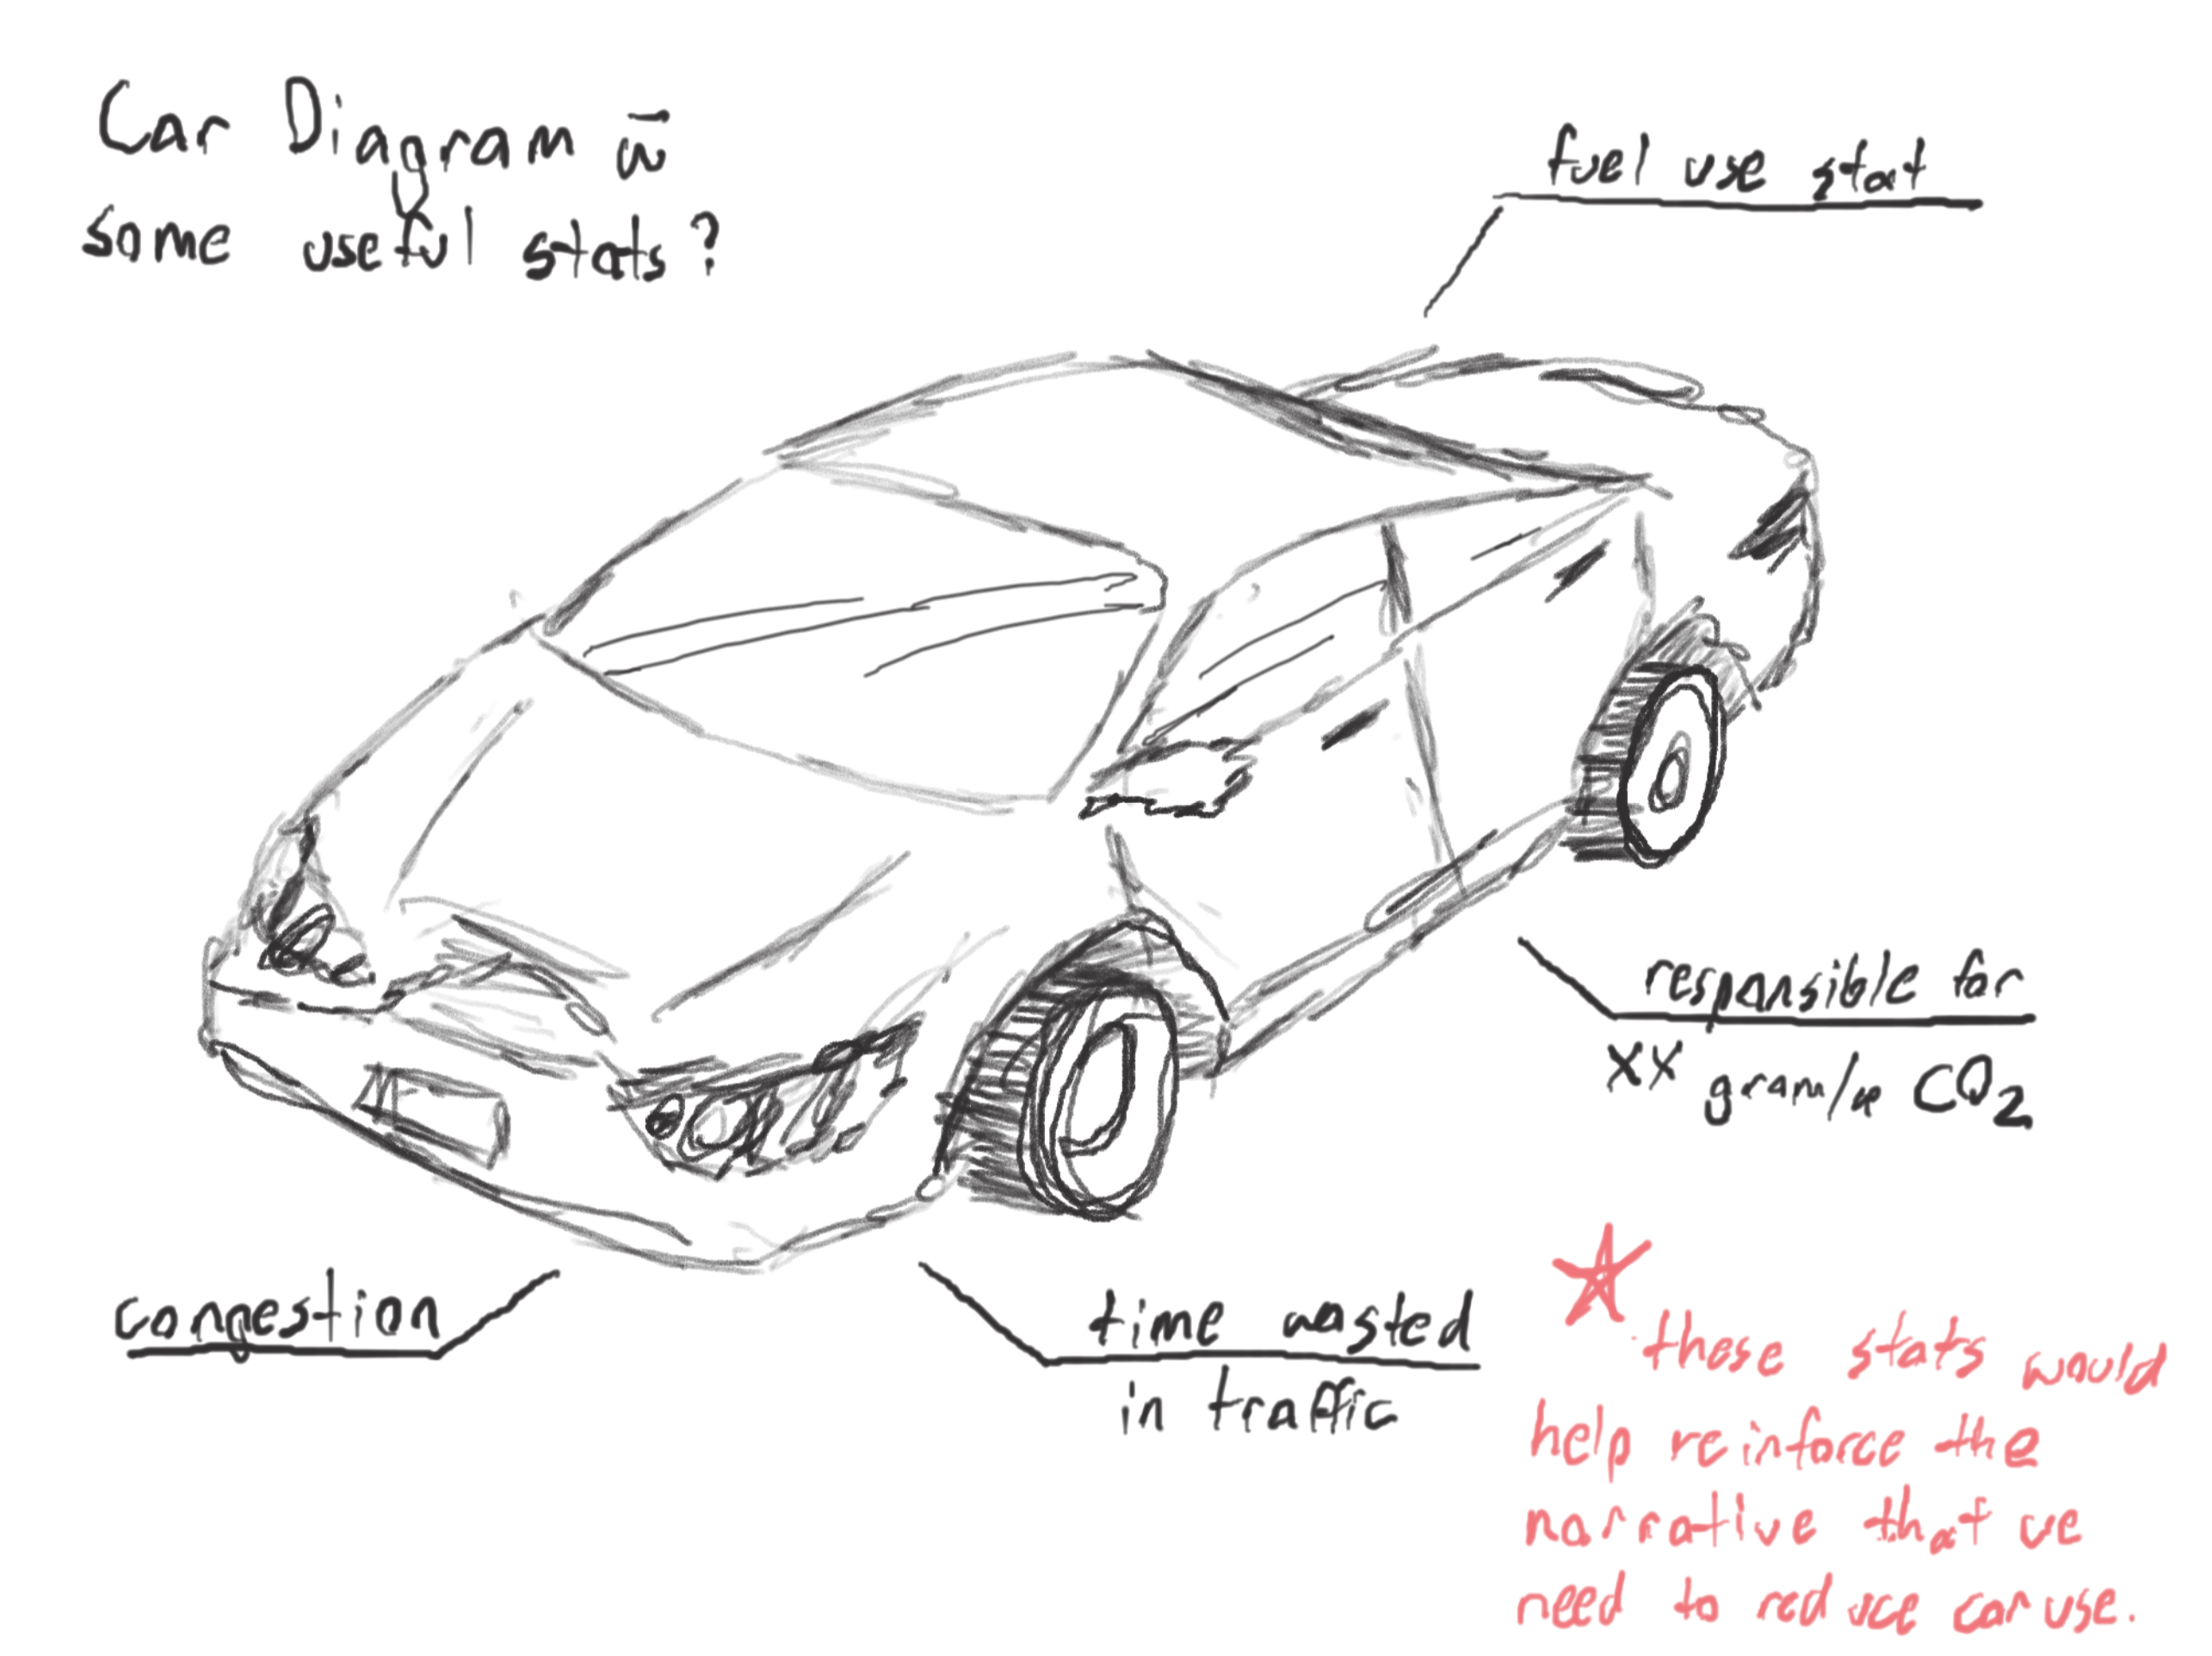 Car Diagram w̄
some useful stats?
fuel use stat
responsible for
XX gram/
CO2
congestion
time wasted
in traffic
these stats would
help reinforce the
narrative that we
need to reduce car use.